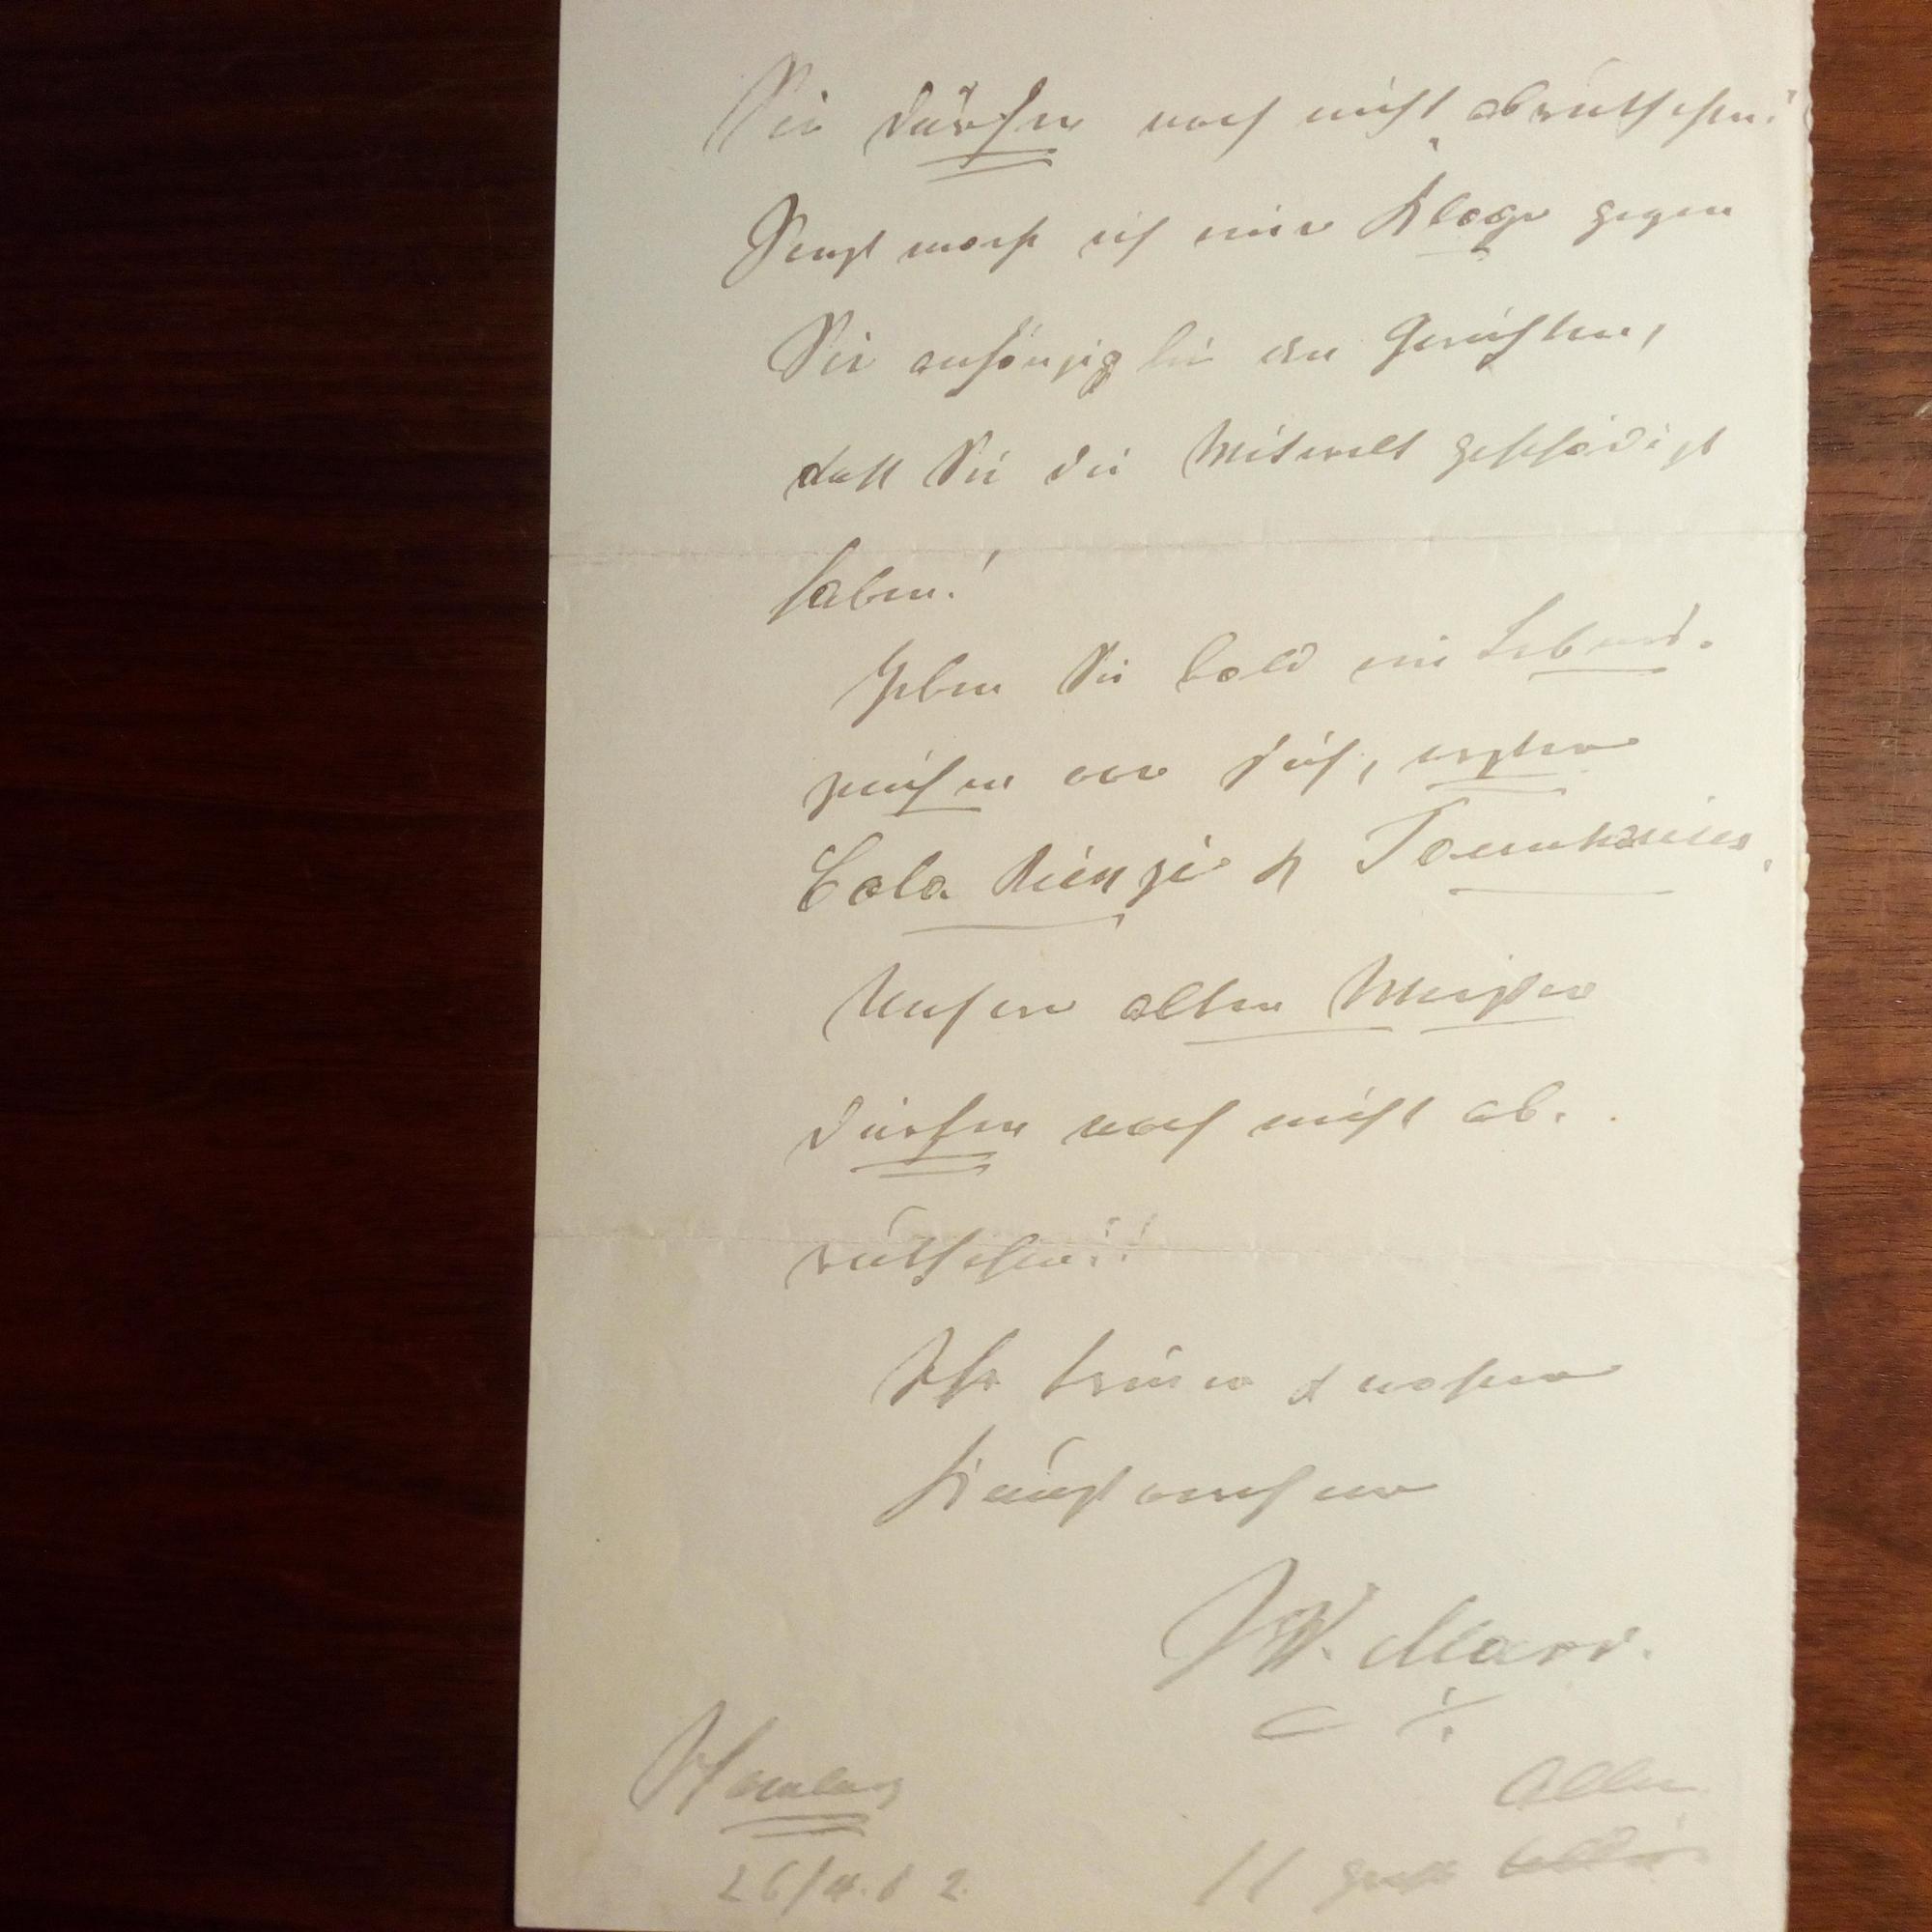 Sie dürfen noch nicht abrutschen!
Sonst mach ich eine Klage gegen
Sie anhängig bei den Gerichten,
daß Sie die Mitwelt geschädigt
haben!
Geben Sie bald ein Lebens-
zeichen von sich, erster
Cola Rienzi & Tannhäuser.
Unsere alten Meister
dürfen noch nicht ab-
rutschen!!
Ihr treuer &
W. Marr.
Hamburg
26/4. 2.